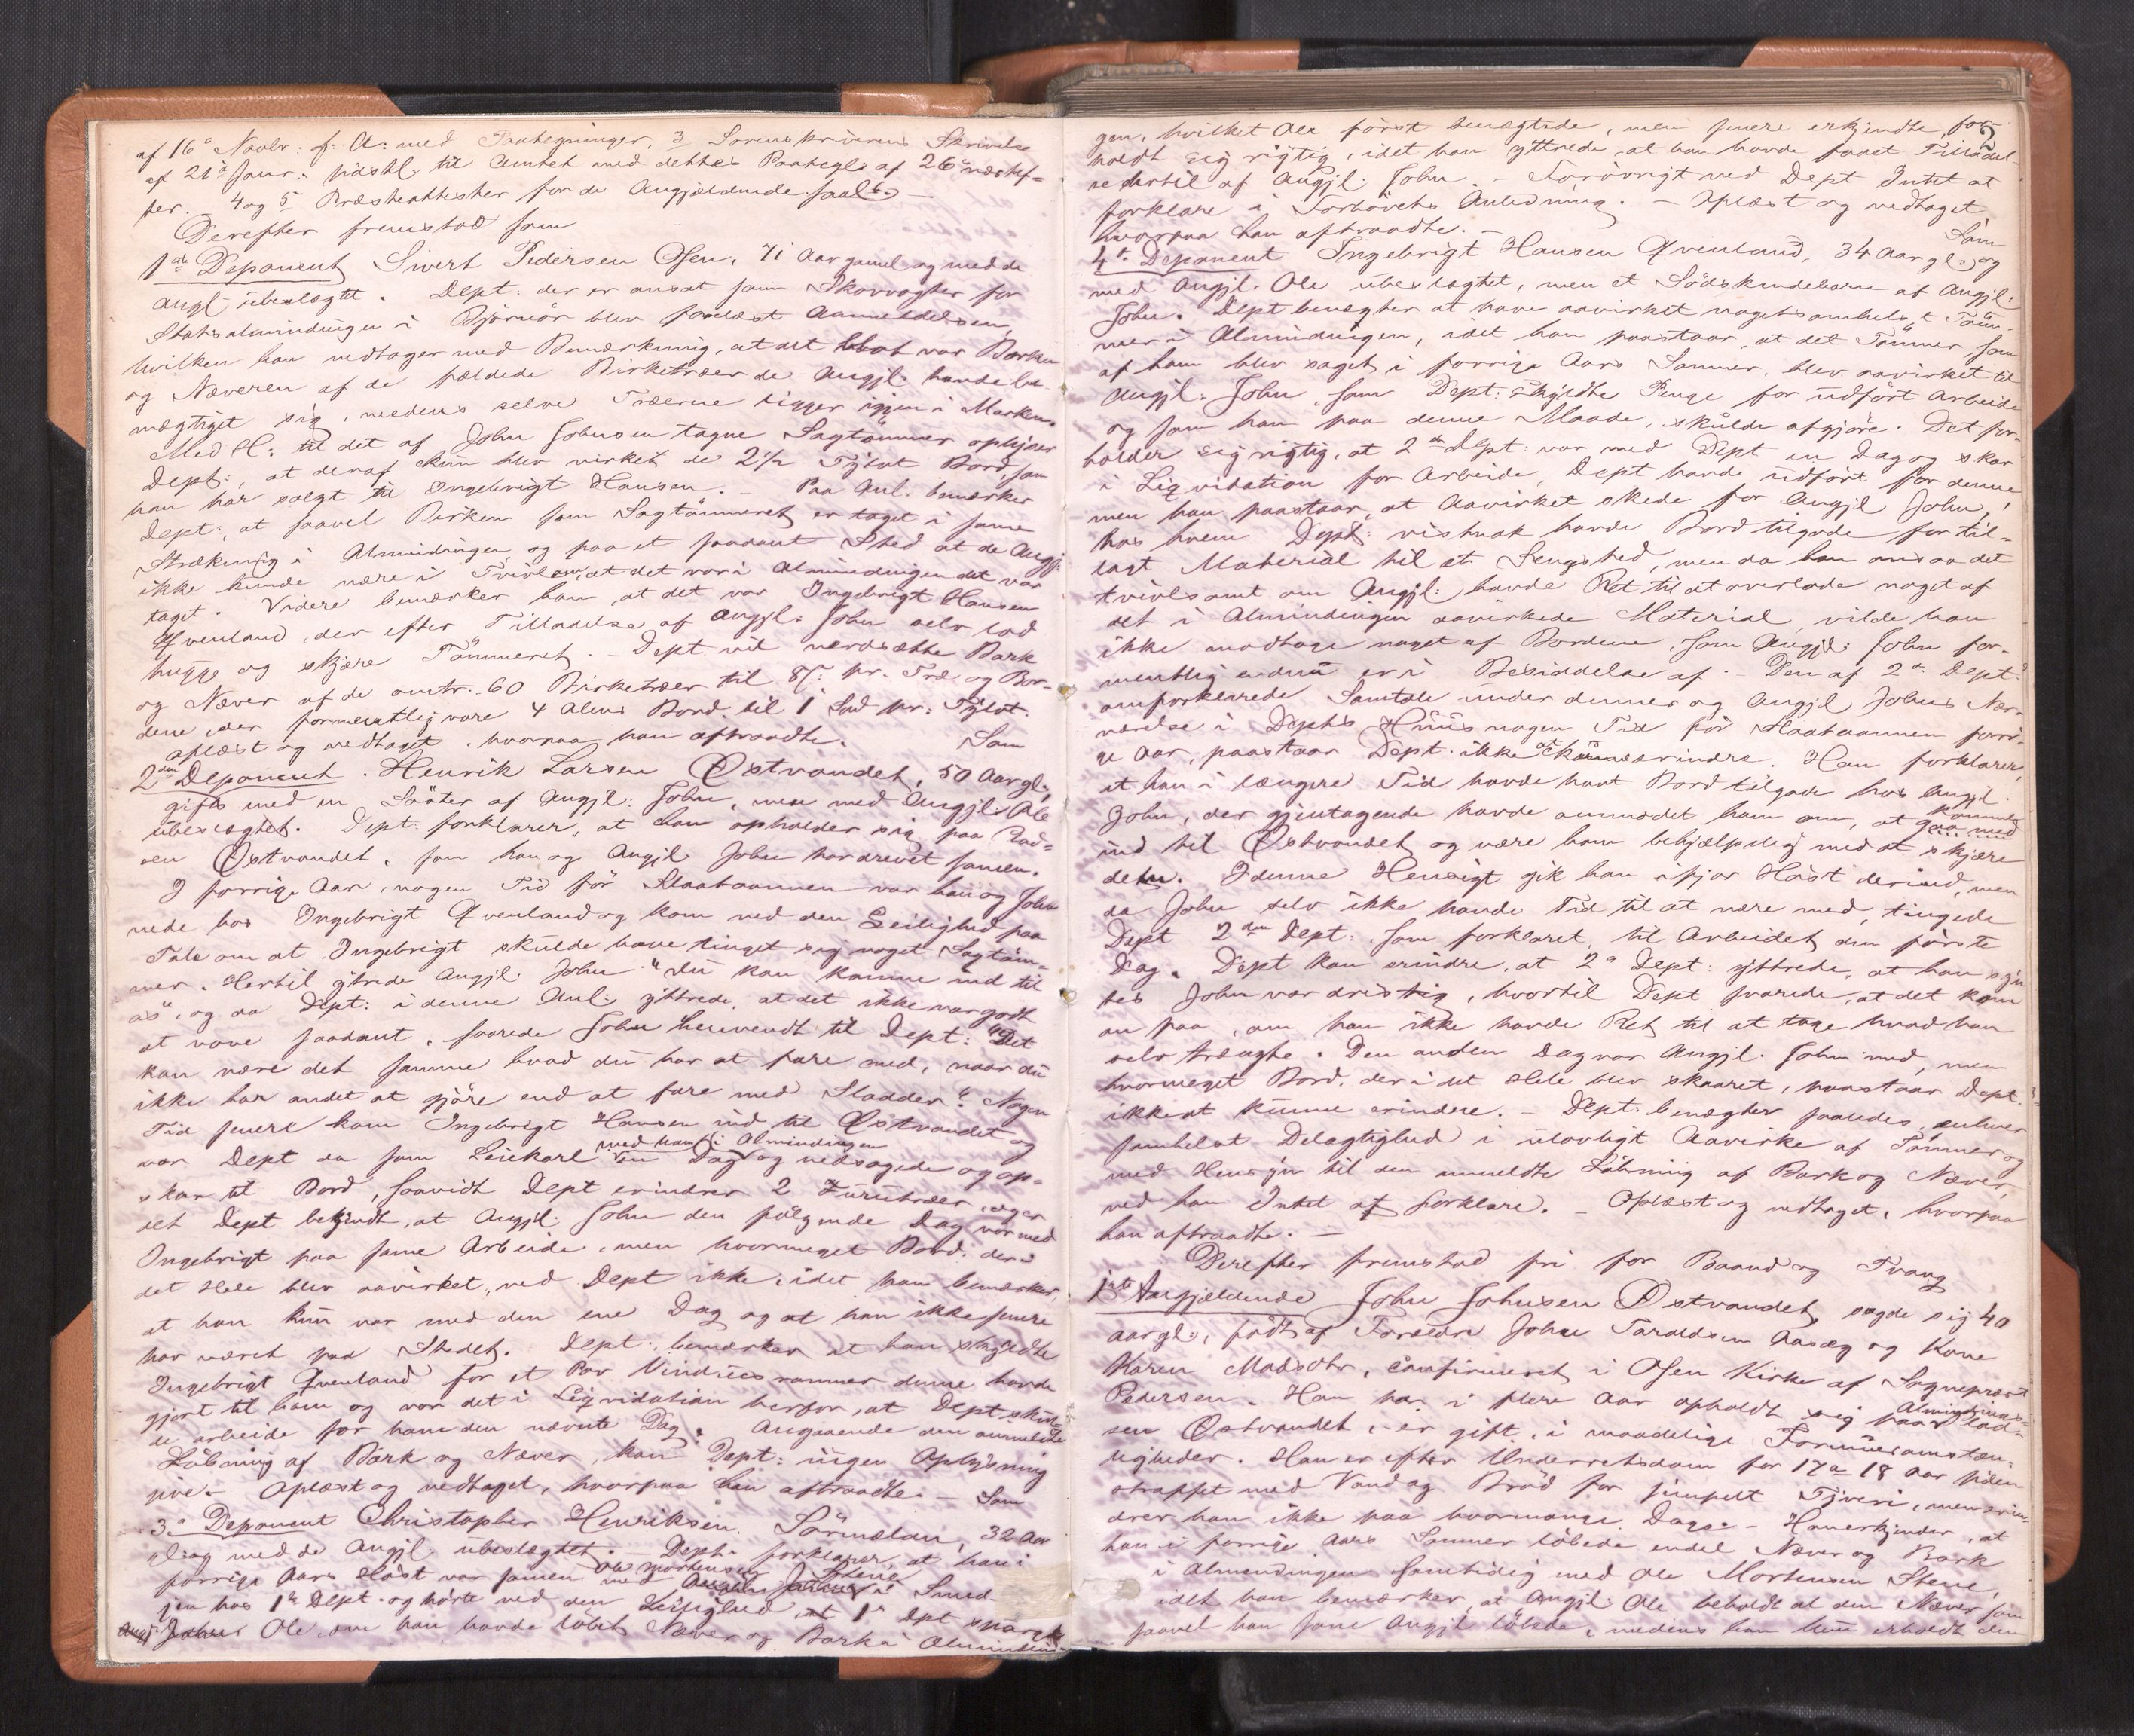 af 16de Novbr: f. A: med Paategninger, 3 Sorenskriverens Skrivelse
af 21de Janr. pidstl. til Amtet med dettes Paategl. af 26de næstef-
ter. 4 og 5 Præsteattester for de Angjældende saal.
Derefter fremstod som
1ste Deponent Sivert Pedersen Osen, 71 Aar gamel og med de
angl. ubeslægtet. Dept: der er ansat som Skovvogter for
Statsalmindingen i Bjørnør blev forelæst Anmeldelsen,
hvilken han vedtager med Bemærkning, at det blot var Barken
og Næveren af de fældede Birketræer de Angjl. havde be-
mægtiget sig, medens selve Træerne ligger igjen i Marken.
Med H: til det af John Johnsen tagne Sagtømmer oplyser
Dept:, at deraf kun blev virket de 2½ Tylvt Bord, som
han har solgt til Ingebrigt Hansen. – Paa Anl. bemærker
Dept:, at saavel Birken som Sagtømmeret er taget i samme
Strækning i Almindingen og paa et saadant Sted at de Angjl
ikke kunde være i Tvivl om, at det var i Almindingen det var
taget. Videre bemærker han, at det var Ingebrigt Hansen
Qvenland, der efter Tilladelse af Angjl: John selv lod
hugge og skjære Tømmeret. – Dept vil værdsætte Bark
og Næver af de omtr. 60 Birketræer til 8/ pr. Træ og Bor-
dene, der formentlig vare 4 Alens Bord til 1 Spd pr. Tylvt.
Oplæst og vedtaget, hvorpaa han aftraadte. Som
2den Deponent. Henrik Larsen Østvandet, 50 Aar gl.,
gift med en Søster af Angjl: John, men med Angjl: Ole
ubeslægtet. Dept. forklarer, at han opholder sig paa Plad-
sen Østvandet, som han og Angjl. John har drevet sammen.
I forrige Aar, nogen Tid før Slaataannen var han og John
nede hos Ingebrigt Qvenland og kom ved den Leilighed paa
Tale om at Ingebrigt skulde have tinget sig noget Sagtøm-
mer. Hertil ytrede Angjl. John: "Du kan komme ind til
os", og da Dept: i denne Anl: yttrede, at det ikke var godt
at vove saadant, svarede John henvendt til Dept: "Det
kan være det samme hvad du har at fare med, naar du
ikke har andet at gjøre end at fare med Sladder". Nogen
Tid senere kom Ingebrigt Hansen ind til Østvandet og
var Dept da som Leiekarl med ham i Almindingen en Dag og nedsagede og op-
skar til Bord, saavidt Dept erindrer 2 Furutræer, ligesom
det Dept bekjendt, at Angjl. John den følgende Dag var med
Ingebrigt paa samme Arbeide, men hvormeget Bord der i
det Hele blev aavirket, ved Dept ikke, idet han bemærker,
at han kun var med den ene Dag og at han ikke senere
har været paa Stedet. Dept: bemærker at han skyldte
Ingebrigt Qvenland for et Par Vinduesrammer denne havde
gjort til ham og var det i Liqvidation herfor, at Dept skul-
de arbeide for ham den nævnte Dag. Angaaende den anmeldte
Løbning af Bark og Næver, kan Dept: ingen Oplysning
give. Oplæst og vedtaget, hvorpaa han aftraadte. – Som
3de Deponent Christopher Henriksen Sørmælan, 32 Aar
gl. og med de Angjl. ubeslægtet. – Dept. forklarer, at han i
forrige Aars Høst var sammen med Ole Mortensen Stene i Smed-
jen hos 1ste Dept. og hørte ved den Leilighed, at 1ste Dpt spurgte
Angjl John Ole, om han havde løbet Næver og Bark i Alminddin-
2
gen, hvilket Ole først benægtede, men senere erkjendte for-
holdt sig rigtig, idet han yttrede, at han havde faaet Tilladel-
se dertil af Angjl. John. – Forøvrigt ved Dept Intet at
forklare i Forhørets Anledning. – Oplæst og vedtaget,
hvorpaa han aftraadte. – Som
4de Deponent Ingebrigt Hansen Qvenland, 34 Aar gl: og
med Angjl. Ole ubeslægtet, men et Sødskendebarn af Angjl:
John. Dept benægter at have aavirket nogetsomhelst Tøm-
mer i Almindingen, idet han paastaar, at det Tømmer som
af ham blev saget i forrige Aars Sommer, blev aavirket til
Angjl: John, som Dept: skyldte Penge for udført Arbeide
og som han paa denne Maade, skulde afgjøre. Det for-
holder sig rigtig, at 2den Dept: var med Dept en Dag og skar
i Liqvidation for Arbeide, Dept havde udført for denne
men han paastaar, at Aavirket skede for Angjl John,
hos hvem Dept: vistnok havde Bord tilgode for til-
lagt Material til et Sengsted, men da han ansaa det
tvivlsomt om Angjl: havde Ret til at overlade noget af
det i Almindingen aavirkede Material, vilde han
ikke modtage noget af Bordene, som Angjl: John for-
mentlig endnu er i Besiddelse af. – Den af 2den Dept:
omforklarede Samtale under dennes og Angjl Johns Nær-
værelse i Depts Huus nogen Tid før Slaataannen forri-
ge Aar, paastaar Dept. ikke at kunne erindre. Han forklarer,
at han i længere Tid havde havt Bord tilgode hos Angjl.
John, der gjentagende havde anmodet ham om, at komme
ind til Østvandet og være ham behjælpelig med at skjære
dem. I denne Hensigt gik han ifjor Høst derind, men
da John selv ikke havde Tid til at være med, tingede
Dept 2den Dept: som forklaret, til Arbeidet den første
Dag. Dept kan erindre, at 2den Dept: yttrede, at han syn-
tes John var dristig, hvortil Dept svarede, at det kom
an paa, om han ikke havde Ret til at tage hvad han
selv trængte. Den anden Dag var Angjl. John med, men
hvormeget Bord, der i det Hele blev skaaret, paastaar Dept.
ikke at kunne erindere. – Dept: benægter saaledes enhver
somhelst Delagtighed i ulovligt Aavirke af Tømmer og
med Hensyn til den anmeldte Løbning af Bark og Næver,
ved han Intet at forklare. – Oplæst og vedtaget, hvorpaa
han aftraadte. –
Derefter fremstod fri for Baand og Tvang
1ste Angjældende John Johnsen Østvandet, sagde sig 40
Aar gl., født af Forældre John Taraldsen Aasæg og Kone
Karen Madsdtr, confirmeret i Osen Kirke af Sogneprest
Pedersen. Han har i flere Aar opholdt sig paa Almindings-plad-
sen Østvandet, er gift, i maadelige Formuesomstæn-
digheder. Han er efter Underretsdom for 17 a 18 Aar siden
straffet med Vand og Brød for simpelt Tyveri, men erin-
drer han ikke paa hvormange Dage. – Han erkjender, at
han i forrige Aars Sommer løbede endel Næver og Bark
i Almendingen samtidig med Ole Mortensen Stene,
idet han bemærker, at Angjl: Ole beholdt al den Næver som
saavel han som Angjl løbede, medens han kun erholdt den